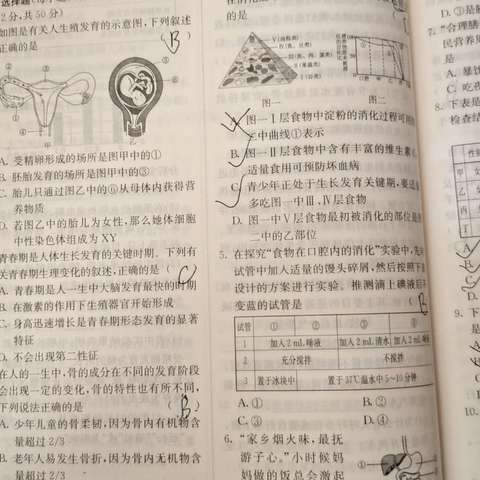 选择题
2分,共 50 分)
如图是有关人生殖发育的示意图,下列叙述
正确的是 ( B )
①
②
③
④
⑤
⑥
甲 乙
A. 受精卵形成的场所是图甲中的①
B. 胚胎发育的场所是图甲中的③
C. 胎儿只通过图乙中的⑥从母体内获得营
养物质
D. 若图乙中的胎儿为女性,那么她体细胞
中性染色体组成为 XY
青春期是人体生长发育的关键时期。下列有
关青春期生理变化的叙述,正确的是 ( C
A. 青春期是人一生中大脑发育最快的时期
B. 在激素的作用下生殖器官开始形成
C. 身高迅速增长是青春期形态发育的显著
特征
D. 不会出现第二性征
在人的一生中,骨的成分在不同的发育阶段
会出现一定的变化,骨的特性也有所不同,
下列说法正确的是 ( B )
A. 少年儿童的骨柔韧,因为骨内有机物含
量超过 2/3
B. 老年人易发生骨折,因为骨内无机物含
量超过 2/3
的是
图一 图二
A. 图一Ⅰ层食物中淀粉的消化过程可用图
二中曲线①表示
B. 图一Ⅱ层食物中含有丰富的维生素C,
适量食用可预防坏血病
C. 青少年正处于生长发育关键期,要适量
多吃图一中Ⅲ、Ⅳ层食物
D. 图一中Ⅴ层食物最初被消化的部位是图
二中的乙部位
5. 在探究“食物在口腔内的消化”实验中,先向
试管中加入适量的馒头碎屑,然后按照下表
设计的方案进行实验。推测滴上碘液后不
变蓝的试管是 ( B
试管 ① ② ③ ④
1 加入2 mL唾液 加入2 mL清水 加入2 mL唾液
2 充分搅拌 不搅拌
3 置于冰块中 置于37℃温水中5~10分钟
A. ① B. ②
C. ③ D. ④
6. “家乡烟火味,最抚
游子心。”小时候妈
妈做的饭总会激起
①
D. ③是
7. “合理膳
民营养
是
A. 暴饮
C. 吃夜
8. 下表是
检查结
性
甲 女
乙 女
丙
丁
A.
B.
C.
D.
9. 下
是
A
B
C
D
10.